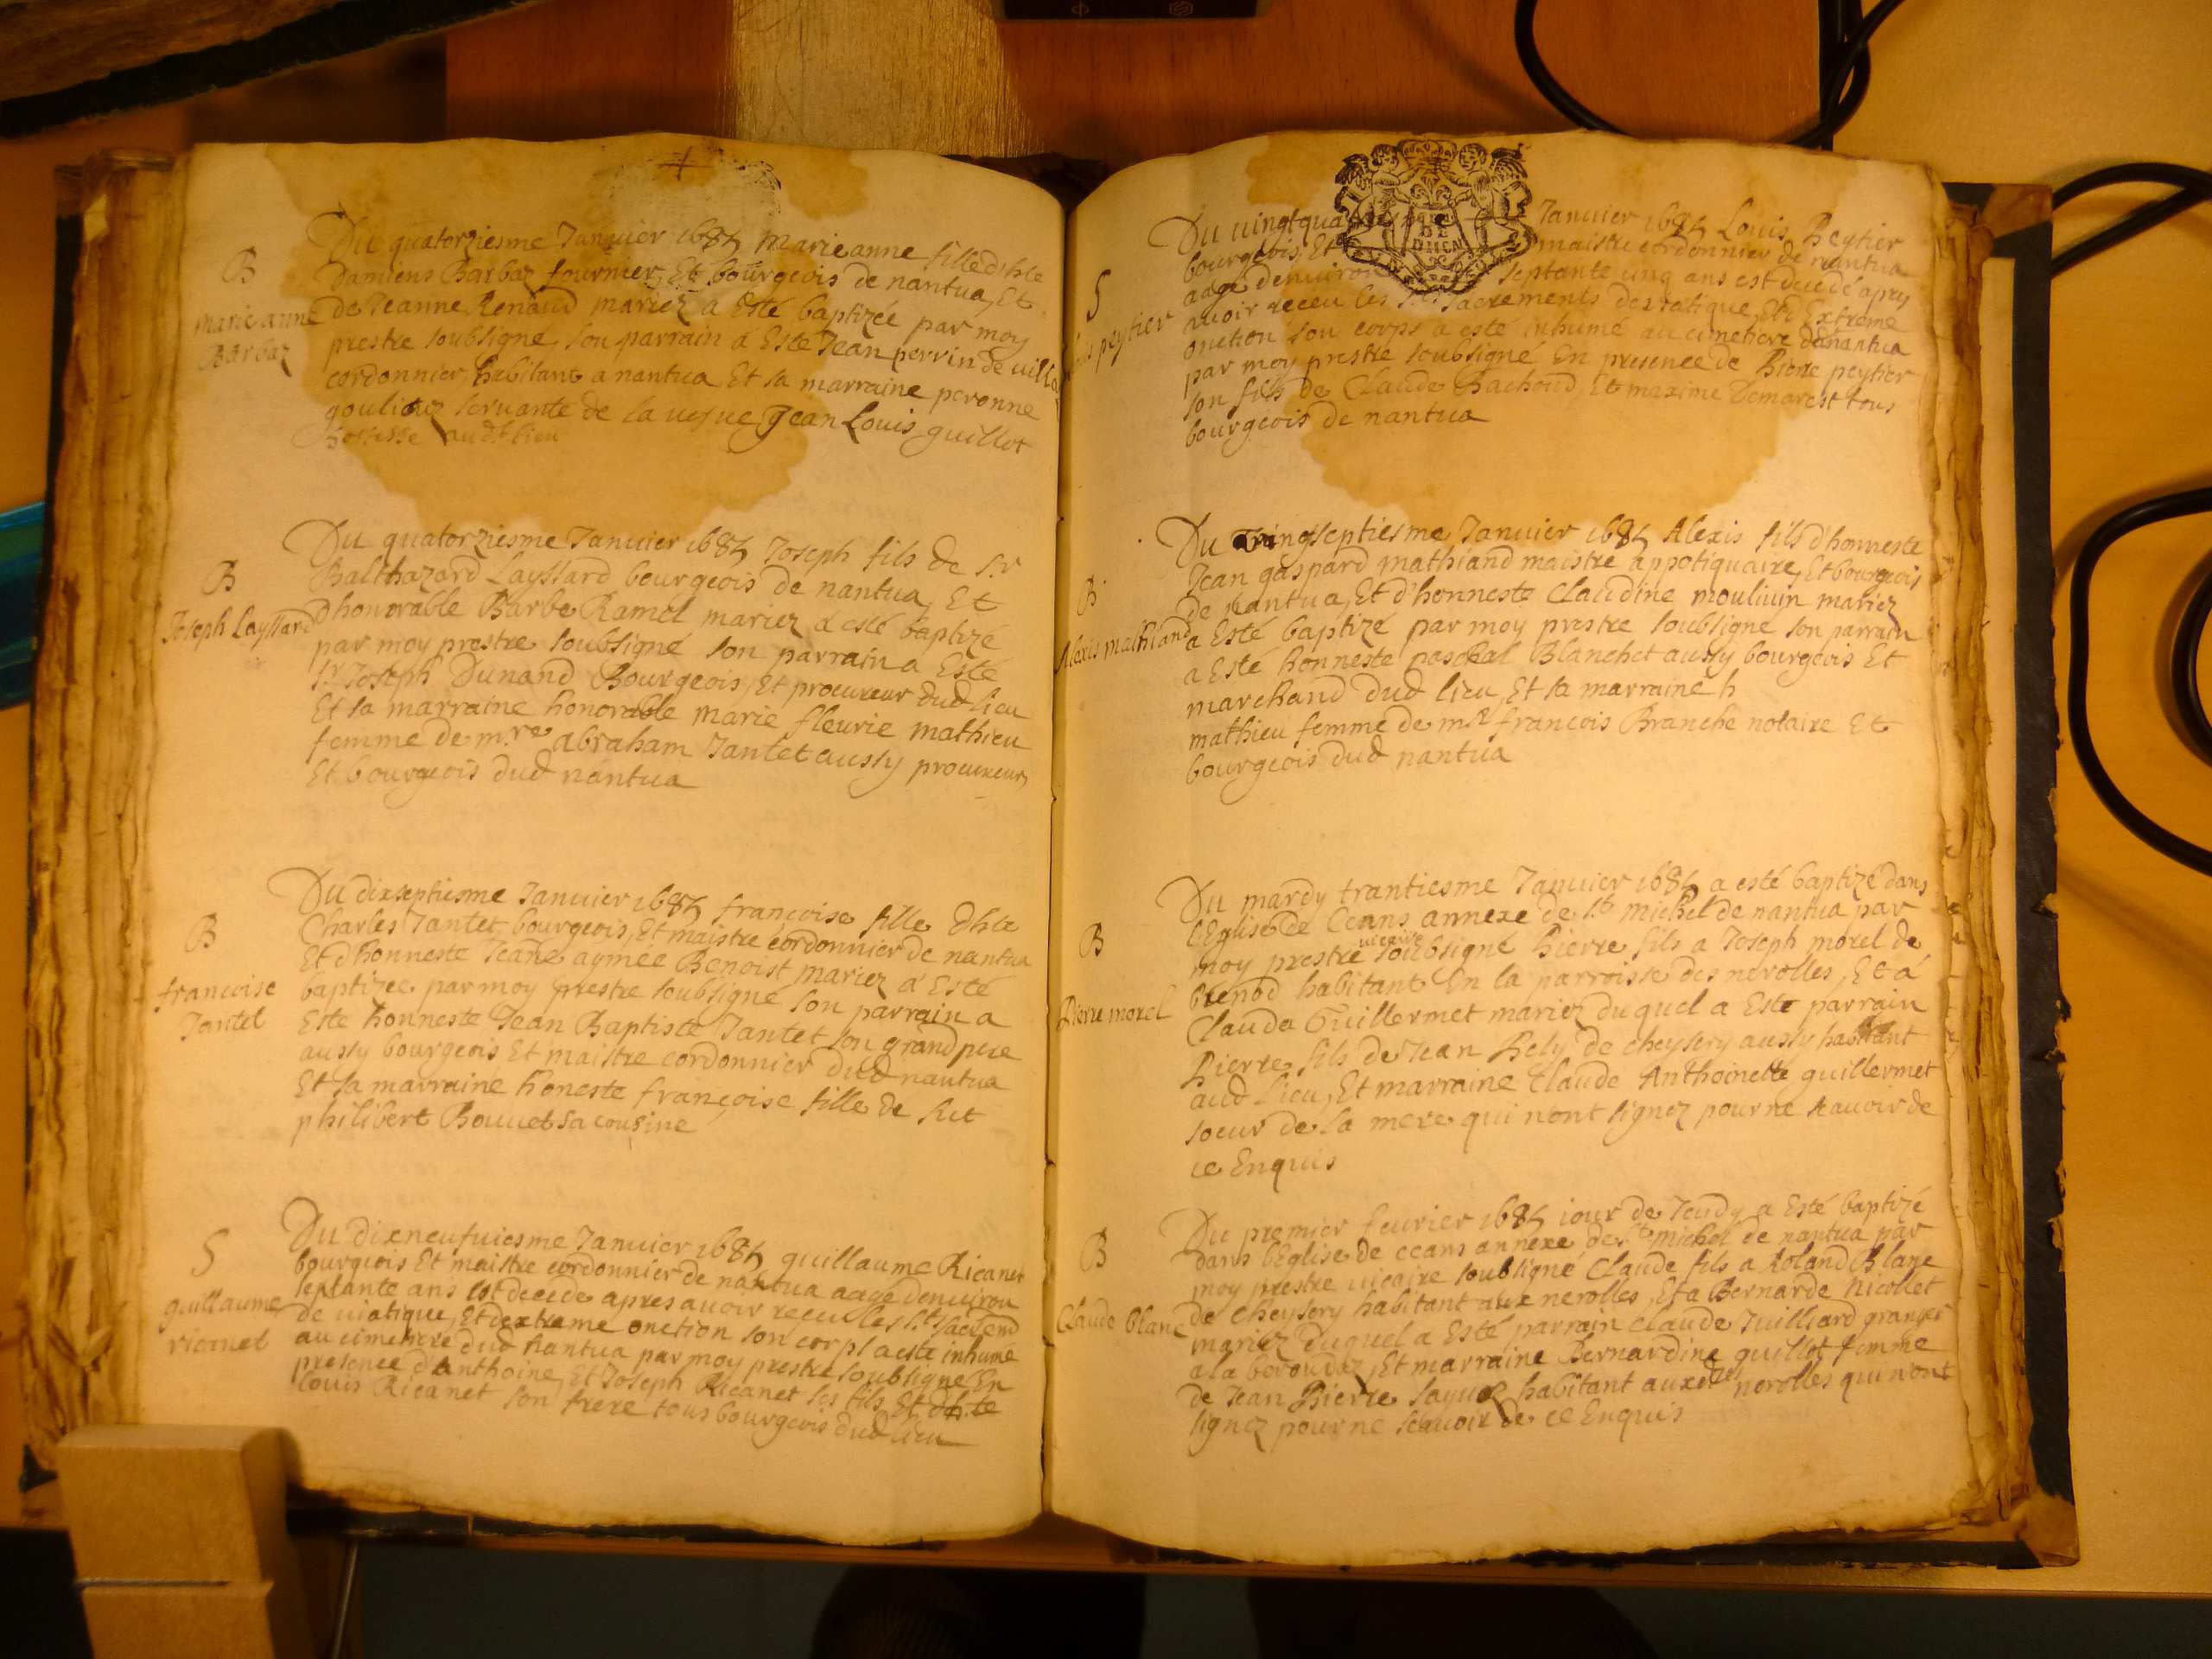 Du quatorziesme Januier 1685 Marie anne fille d'hle
B
Damiens Barbaz fournier, Et bourgeois de nantua, Et
marie anne
Barbaz
de Jeanne Renaud mariez a Esté baptizée par moy
prestre soubsigné, son parrain a Esté Jean perrin de
cordonnier, habitant a nantua Et sa marraine peronne
gouliouz seruante de la vefue Jean Louis guillot
hostesse aud.t lieu
Du quatorziesme Januier 1685 Joseph fils de S.r
B
Joseph Layssard
Balthazard Layssard bourgeois de nantua, Et
d'honorable Barbe Ramel mariez a esté baptizé
par moy prestre soubsigné son parrain a Esté
S.r Joseph Dunand Bourgeois, Et procureur dud lieu
Et sa marraine honorable marie fleurie mathieu
femme de m.re abraham Jantet aussy procureur,
Et bourgeois dud nantua
Du dixseptiesme Januier 1685 françoise fille dhle
B
francoise
Jantet
Charles Jantet, bourgeois, Et maistre cordonnier de nantua
Et d'honneste Jeane aymée Benoist mariez a Esté
baptizée par moy prestre soubsigné son parrain a
Esté honneste Jean Baptiste Jantet son grand pere
aussy bourgeois Et maistre cordonnier dud nantua
Et sa marraine honeste françoise fille de
philibert Bouuet sa cousine
Du dixneufuiesme Januier 1685 guillaume Ricanet
S
guillaume
ricanet
bourgeois Et maistre cordonnier de nantua aagé denuiron
septante ans est decedé apres auoir receu les s.ts sacrem
de uiatique, Et dextreme onction son corps a esté inhumé
au cimetiere dud nantua par moy prestre soubsigné En
presence d'anthoine, Et Joseph Ricanet ses fils Et dh.te
Louis Ricanet son frere tous bourgeois dud lieu
Du uingtqua Januier 1685 Louis Peytier
S
peytier
bourgeois, Et maistre cordonnier de nantua
aagé denuiron septante cinq ans est decedé apres
auoir receu les s.ts sacrements de uiatique, Et d'Extreme
onction son corps a esté inhumé au cimetiere de nantua
par moy prestre soubsigné En presence de Pierre peytier
son fils de Claude Bachoud Et maxime Demarest tous
bourgeois de nantua
Du uingtseptiesme Januier 1685 Alexis fils d'honneste
B
Alexis mathiand
Jean gaspard mathiand maistre appotiquaire, Et bourgeois
de nantua, Et d'honneste Claudine mouliuin mariez
a Esté baptizé par moy prestre soubsigné son parrain
a Esté honneste paschal Blanchet aussy bourgeois Et
marchand dud lieu, Et sa marraine h
mathieu femme de m.re françois Branche notaire Et
bourgeois dud nantua
Du mardy trantiesme Januier 1685 a esté baptizé dans
B
Pierre morel
l'Eglise de Ceans annexe de s.t michel de nantua par
moy prestre uicaire soubsigné Pierre fils a Joseph morel de
brenod habitant En la parroisse des nerolles, Et a
Clauda Guillermet mariez duquel a Esté parrain
Pierre fils de Jean Rely de cheysery aussy habitant
aud lieu, Et marraine Claude Anthoinette guillermet
soeur de la mere qui n'ont signez pour ne scauoir de
ce Enquis
Du premier feurier 1685 iour de Jeudy a Esté baptizé
B
Claude blanc
dans l'Eglise de ceans annexe de s.t michel de nantua par
moy prestre uicaire soubsigné Claude fils a Roland Blanc
de cheysery habitant aux nerolles, Et a Bernarde nicollet
mariez duquel a Esté parrain Claude Juilliard granger
a la beroudaz, Et marraine Bernardine guillot femme
de Jean Pierre sayuoz habitant auxd. nerolles qui n'ont
signez pour ne scauoir de ce Enquis